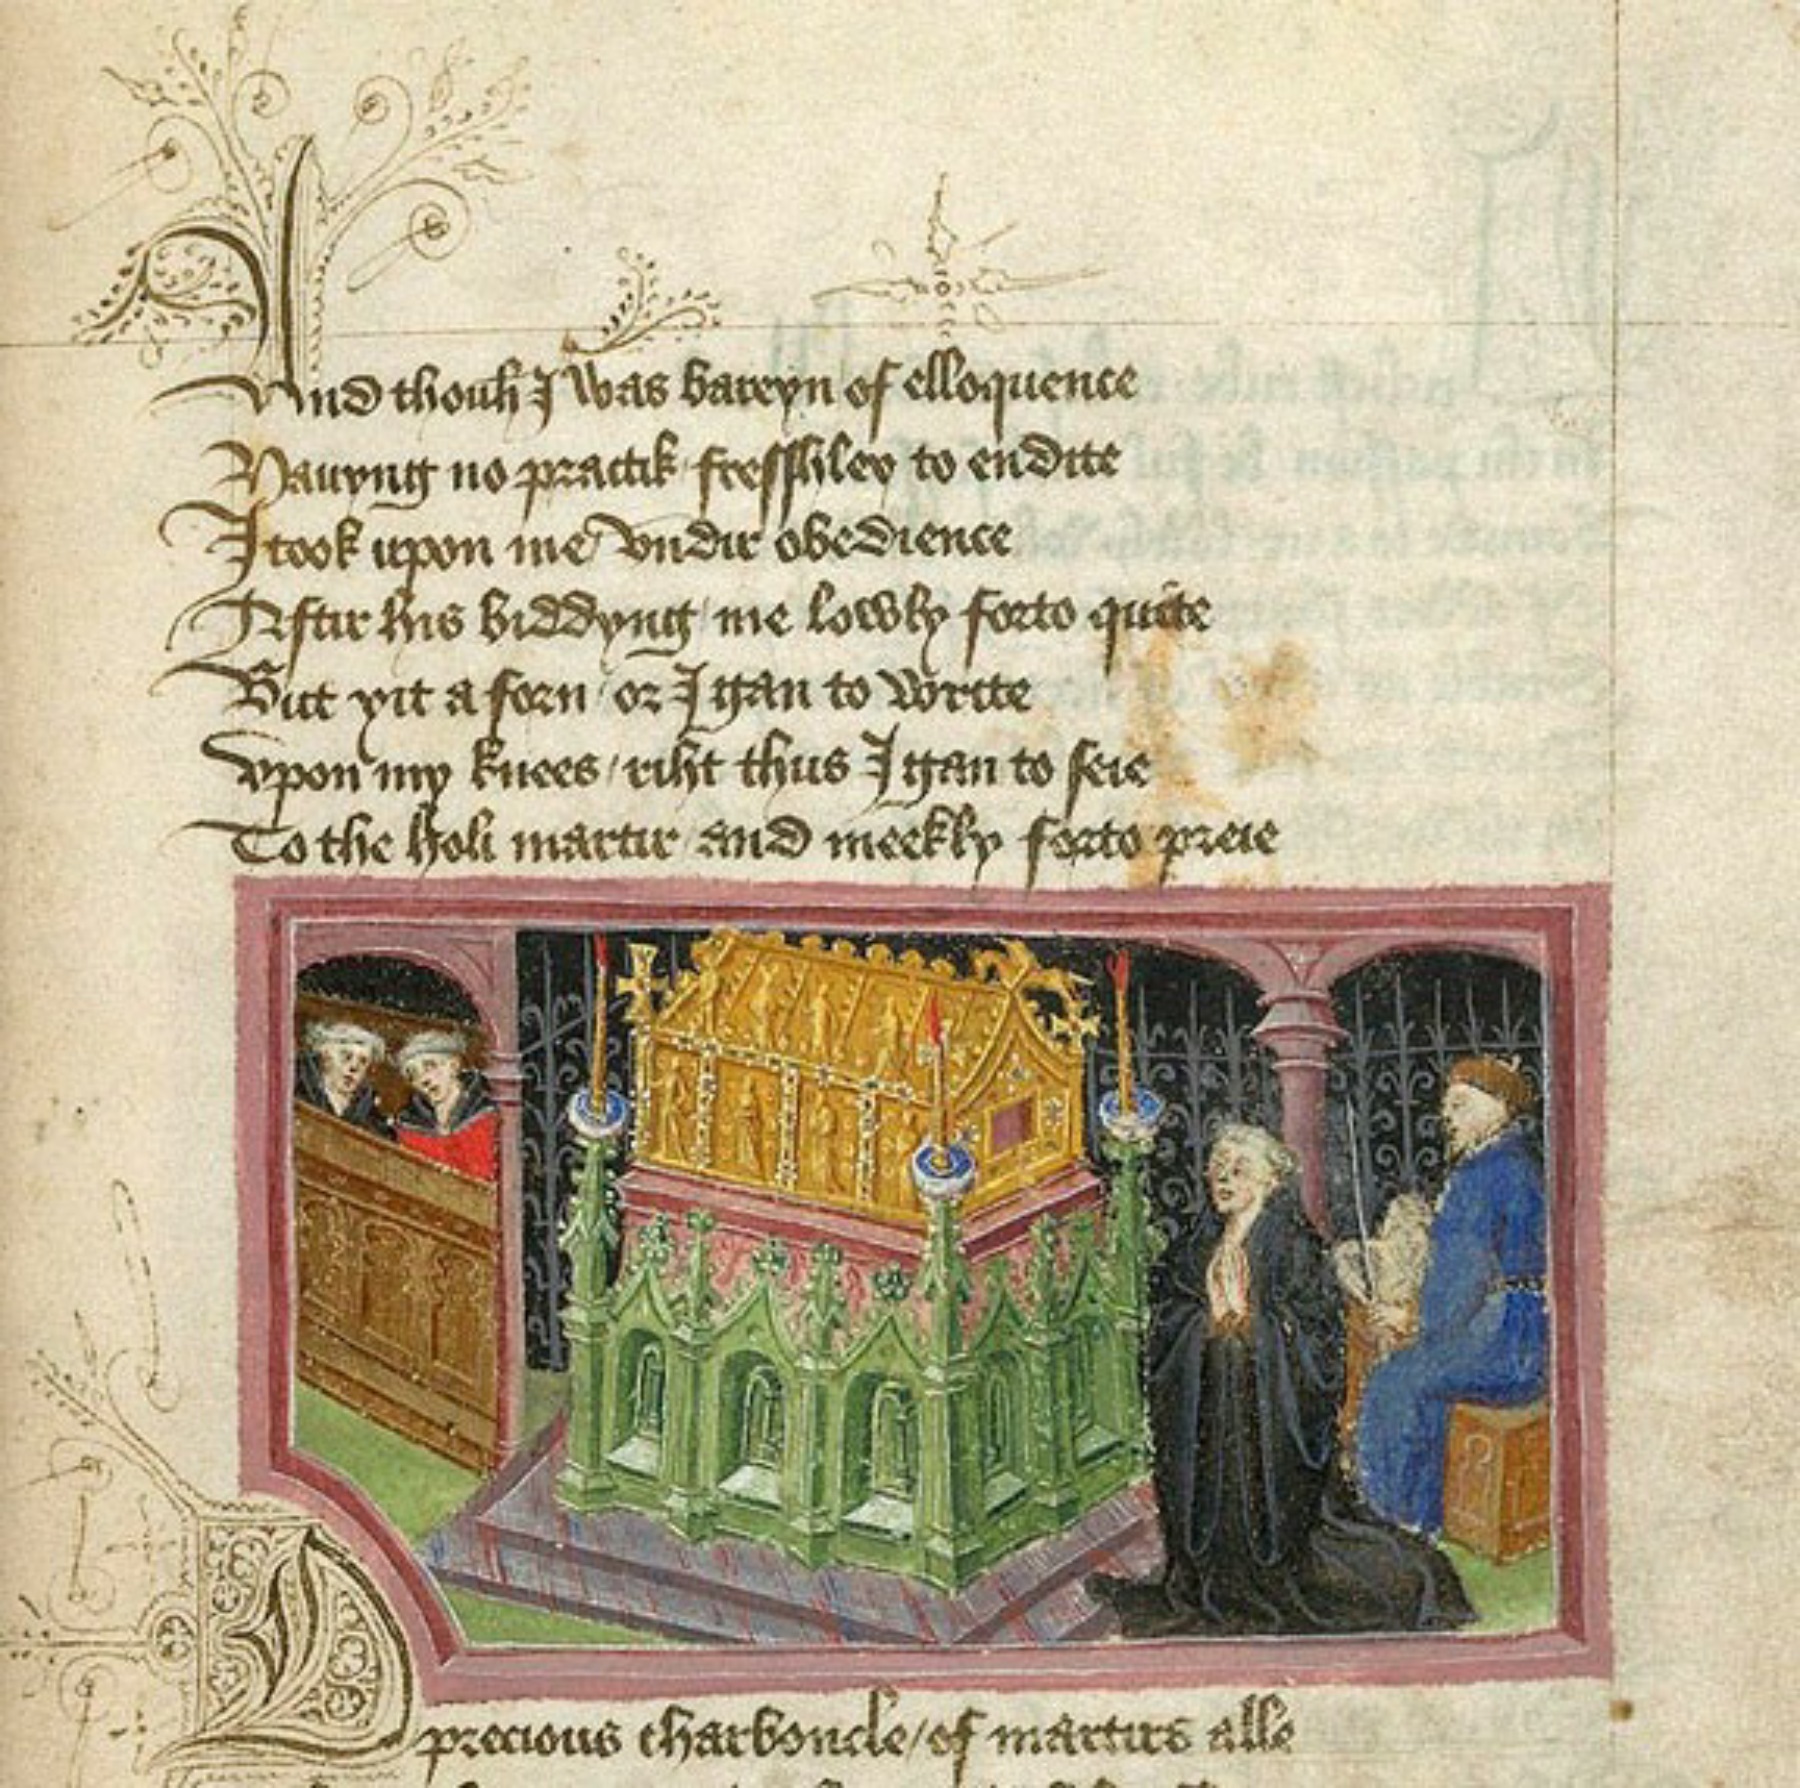 And thouh I was bareyn of elloquence
Hauyng no practik fresshley to endite
I took upon me vndir obedience
Aftir his biddyng me lowly forto quite
But yit aforn or I gan to write
Vpon my knees riht thus I gan to seie
To the holi martir and meekly forto preie
O precious charboncle of martirs alle